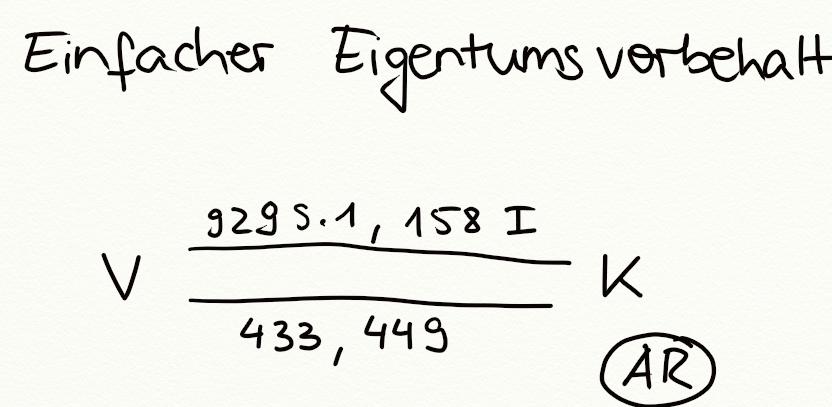 Einfacher Eigentumsvorbehalt
929 S.1, 158 I
V K
433, 449
AR